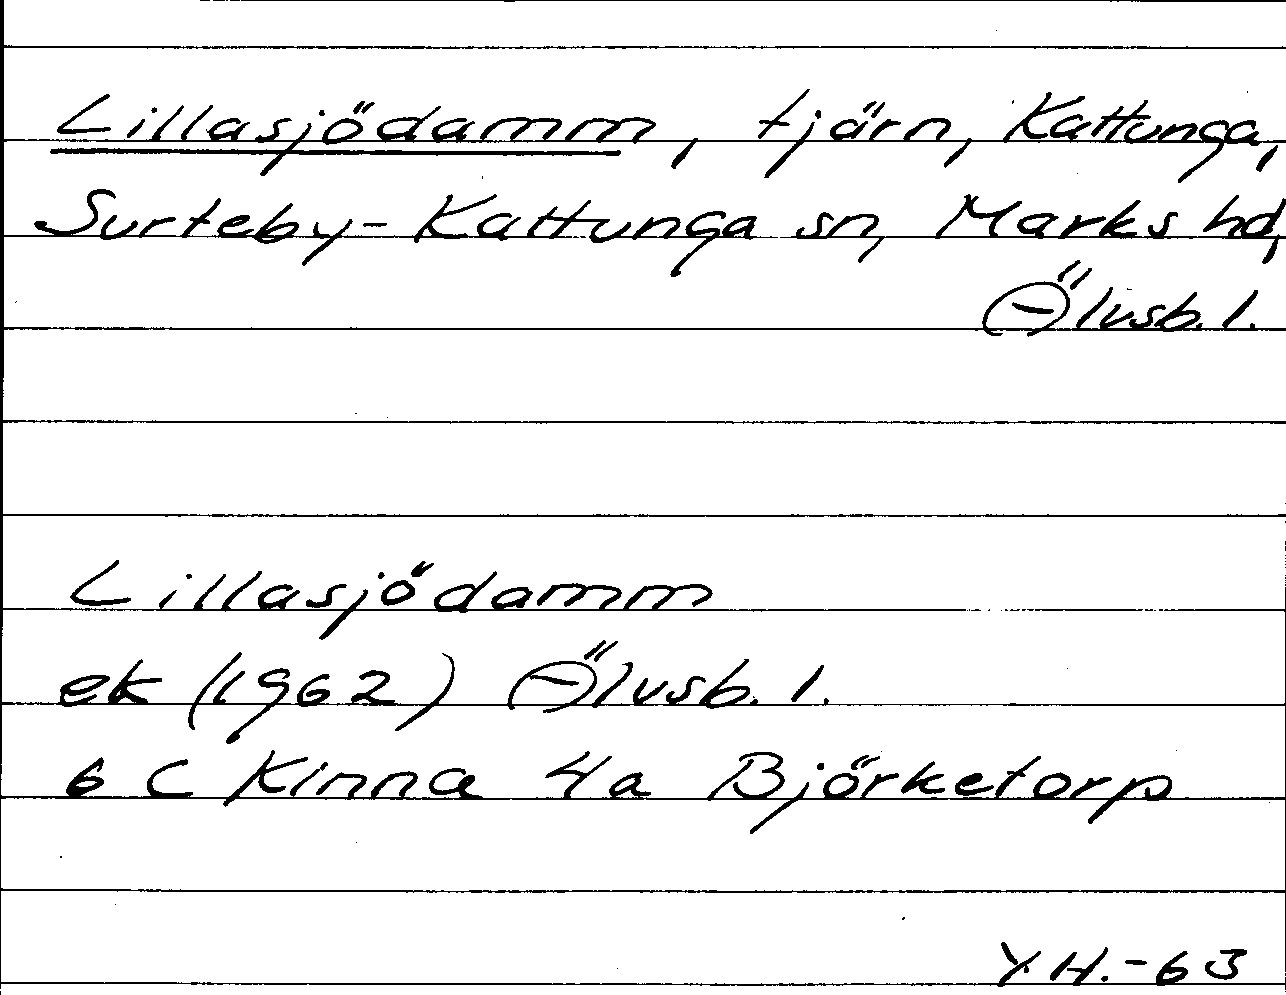 Lillasjödamm, tjärn, Kattunga,
Surteby-Kattunga sn, Marks hd,
Älvsb. l.
Lillasjödamm
ek (1962) Älvsb. l.
6 C Kinna 4a Björketorp
Y.H.-63